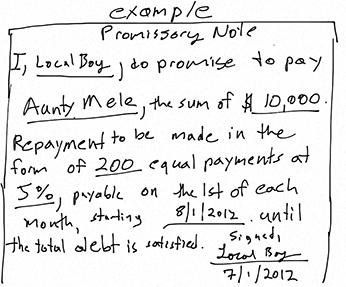 example
Promissory Note
I, Local Boy, do promise to pay
Aunty Mele, the sum of $ 10,000.
Repayment to be made in the
form of 200 equal payments at
5%, payable on the 1st of each
month, starting 8/1/2012 until
the total debt is satisfied.
Signed,
Local Boy
7/1/2012